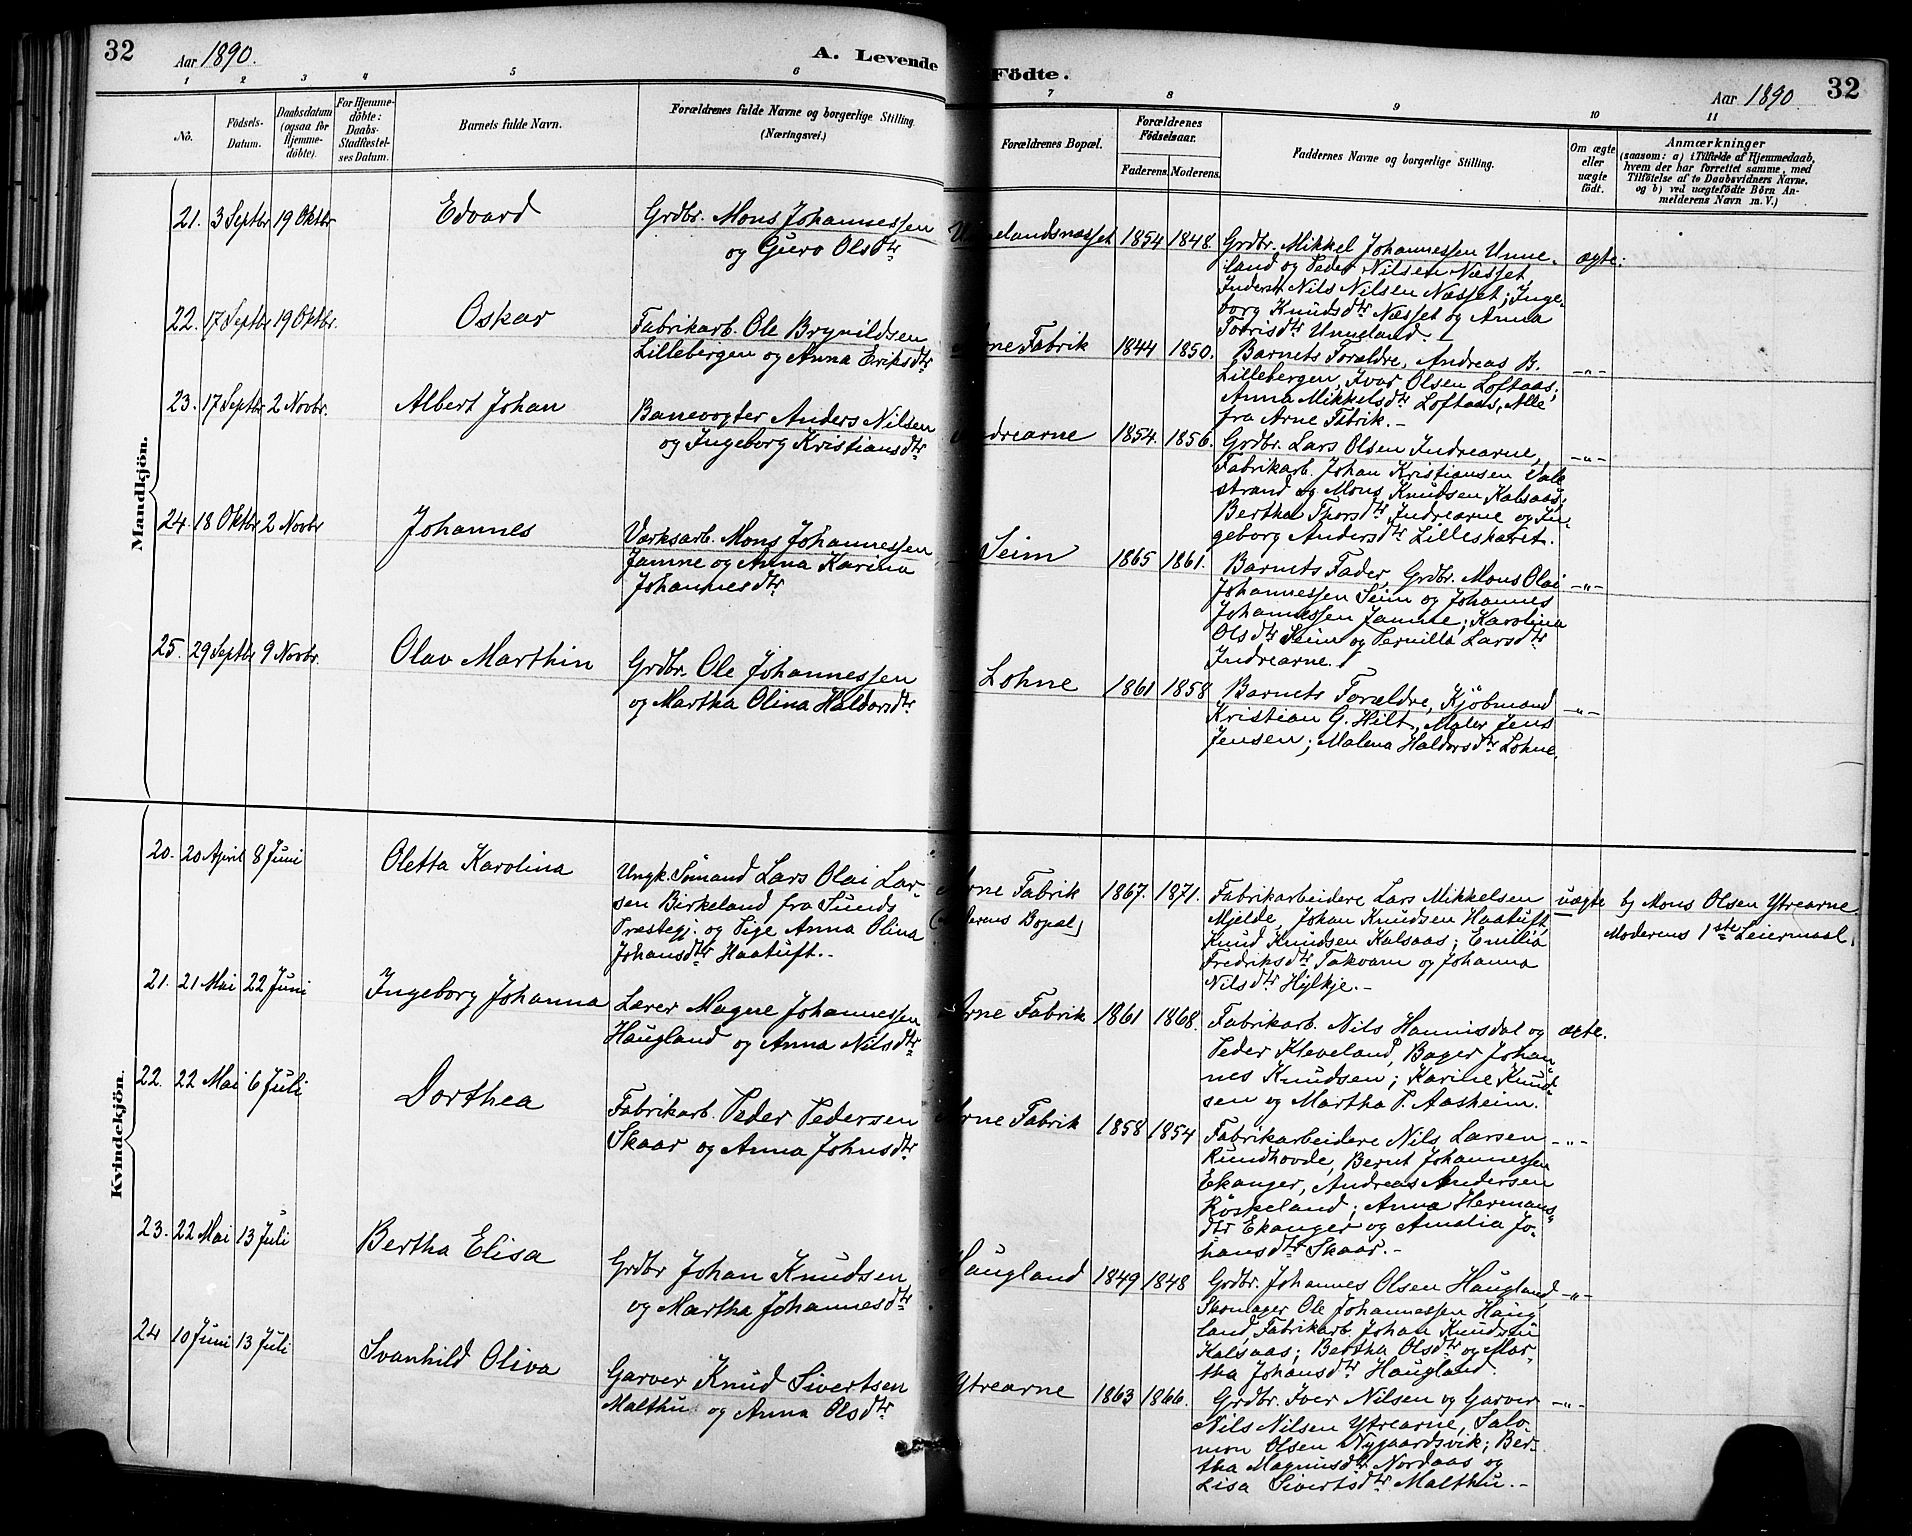 32
Aar 1890.
A. Levende Födte.
Aar 1890
32
1
2
3
4
5
6
7
8
9
10
11
No.
Födsels-
Datum.
Daabsdatum
(ogsaa for
Hjemme-
döbte).
For Hjemme-
döbte:
Daabs-
Stadfæstel-
ses Datum.
Barnets fulde Navn.
Forældrenes fulde Navne og borgerlige Stilling
(Næringsvei.)
Forældrenes Bopæl.
Forældrenes
Födselsaar.
Faderens.
Moderens.
Faddernes Navne og borgerlige Stilling.
Om ægte
eller
uægte
födt.
Anmærkninger
(saasom: a) i Tilfælde af Hjemmedaab,
hvem der har forrettet samme, med
Tilföielse af to Daabsvidners Navne,
og b) ved uægtefödte Börn An-
melderens Navn m. V.)
Mandkjön.
21. 3 Septbr 19 Oktbr
Edvard
Grdbr. Mons Johannessen
og Guro Olsdtr
1854 1848
Grdbr. Mikkel Johannessen Unne-
land og Peder Nilsen Næsset
Inderst Nils Nilsen Næsset; Inge-
borg Knudsdtr Næsset og Anna
Unneland.
ægte.
22. 17 Septbr 19 Oktbr.
Oskar
Fabrikarb. Ole Brynildsen
Lillebergen og Anna Eriksdtr
Arne Fabrik 1844 1850.
Barnets Forældre, Andreas B.
Lillebergen, Ivar Olsen Loftaas,
Anna Mikkelsdtr Loftaas, Alle
fra Arne Fabrik.-
-"-
23. 17 Septbr 2 Novbr.
Albert Johan
Banevogter Anders Nilsen
og Ingeborg Kristiansdtr
Indrearne 1854. 1856.
Grdbr. Lars Olsen Indrearne,
Fabrikarb. Johan Kristiansen Vale
strand og Mons Knudsen Kalsaas;
Bertha Thorsdtr Indrearne og In-
geborg Andersdtr Lilleskaret.
-"-
24. 18 Oktbr 2 Novbr
Johannes
Værksarb. Mons Johannessen
Jamne og Anna Karina
Johannesdtr
Seim 1865 1861.
Barnets Fader, Grdbr. Mons Olai
Johannessen Seim og Johannes
Johannessen Jamne; Karolina
Olsdtr Seim og Pernilla Larsdtr
Indrearne.
-"-
25. 29 Septbr 9 Novbr.
Olav Marthin
Grdbr. Ole Johannessen
og Martha Olina Haldorsdtr
Lohne 1861 1858
Barnets Forældre, Kjöbmand
Kristian G. Hilt, Maler Jens
Jensen; Malena Haldorsdtr Lohne.
-"-
Kvindekjön.
20. 20 April 8 Juni
Oletta Karolina
Ungk. Sömand Lars Olai Lar-
sen Birkeland fra Sunds
Præstegj. og Pige Anna Olina
Johansdtr Haatuft.-
Arne Fabrik
Bopæl)
1867. 1871.
Fabrikarbeidere Lars Mikkelsen
Mjelde, Johan Knudsen Haatuft,
Knud Knudsen Kalsaas; Emilia
Fredriksdtr Takvam og Johanna
Nilsdtr Hylkje.-
uægte
b) Mons Olsen Ytrearne.
Moderens 1ste Leiermaal.
21. 21 Mai 22 Juni
Ingeborg Johanna
Lærer Magne Johannessen
Haugland og Anna Nilsdtr
Arne Fabrik 1861 1868.
Fabrikarb. Nils Hannisdal og
Peder Kleveland, Bager Johan
nes Knudsen; Karine Knud-
sen og Martha P. Aasheim.
ægte.
22. 22 Mai 6 Juli
Dorthea
Fabrikarb. Peder Pedersen
Skaar og Anna Johnsdtr
Arne Fabrik 1858 1854
Fabrikarbeidere Nils Larsen
Rundhovde, Bernt Johannessen
Ekanger, Andreas Andersen
Röskeland; Anna Hermans-
dtr Ekanger og Amalia Jo-
hansdtr Skaar.-
-"-
23. 22 Mai 13 Juli
Bertha Elisa
Grdbr Johan Knudsen
og Martha Johannesdtr
Haugland 1849 1848
Grdbr. Johannes Olsen Haugland,
Skomager Ole Johannessen Haug
land, Fabrikarb. Johan Knudsen
Kalsaas; Bertha Olsdtr og Mar-
tha Johansdtr Haugland.
-"-
24 10 Juni 13 Juli
Svanhild Oliva
Garver Knud Sivertsen
Malthu og Anna Olsdtr
Ytrearne 1863 1866.
Grdbr. Iver Nilsen og Garver
Nils Nilsen Ytrearne, Salo-
mon Olsen Nygaardsvik; Ber-
tha Magnusdtr Nordaas og
Lisa Sivertsdtr Malthu.-
-"-